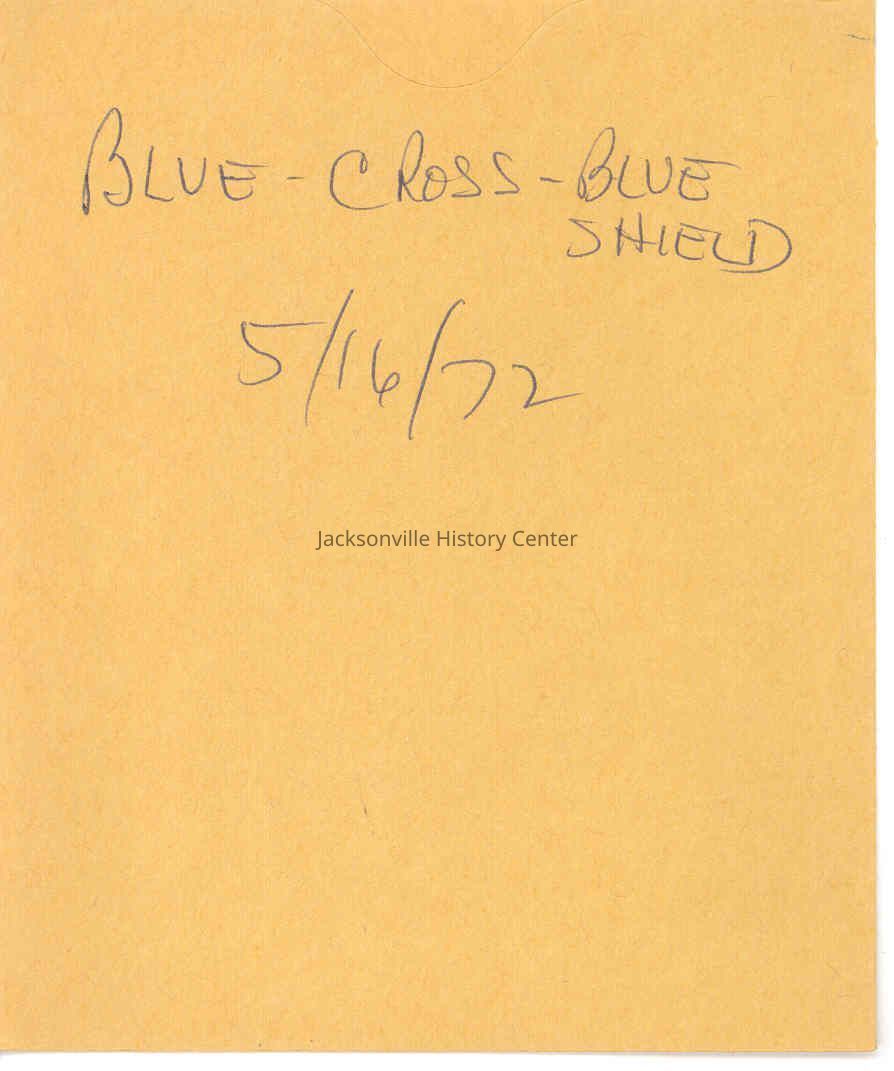 BLUE - CROSS - BLUE
SHIELD
5/16/72
Jacksonville History Center